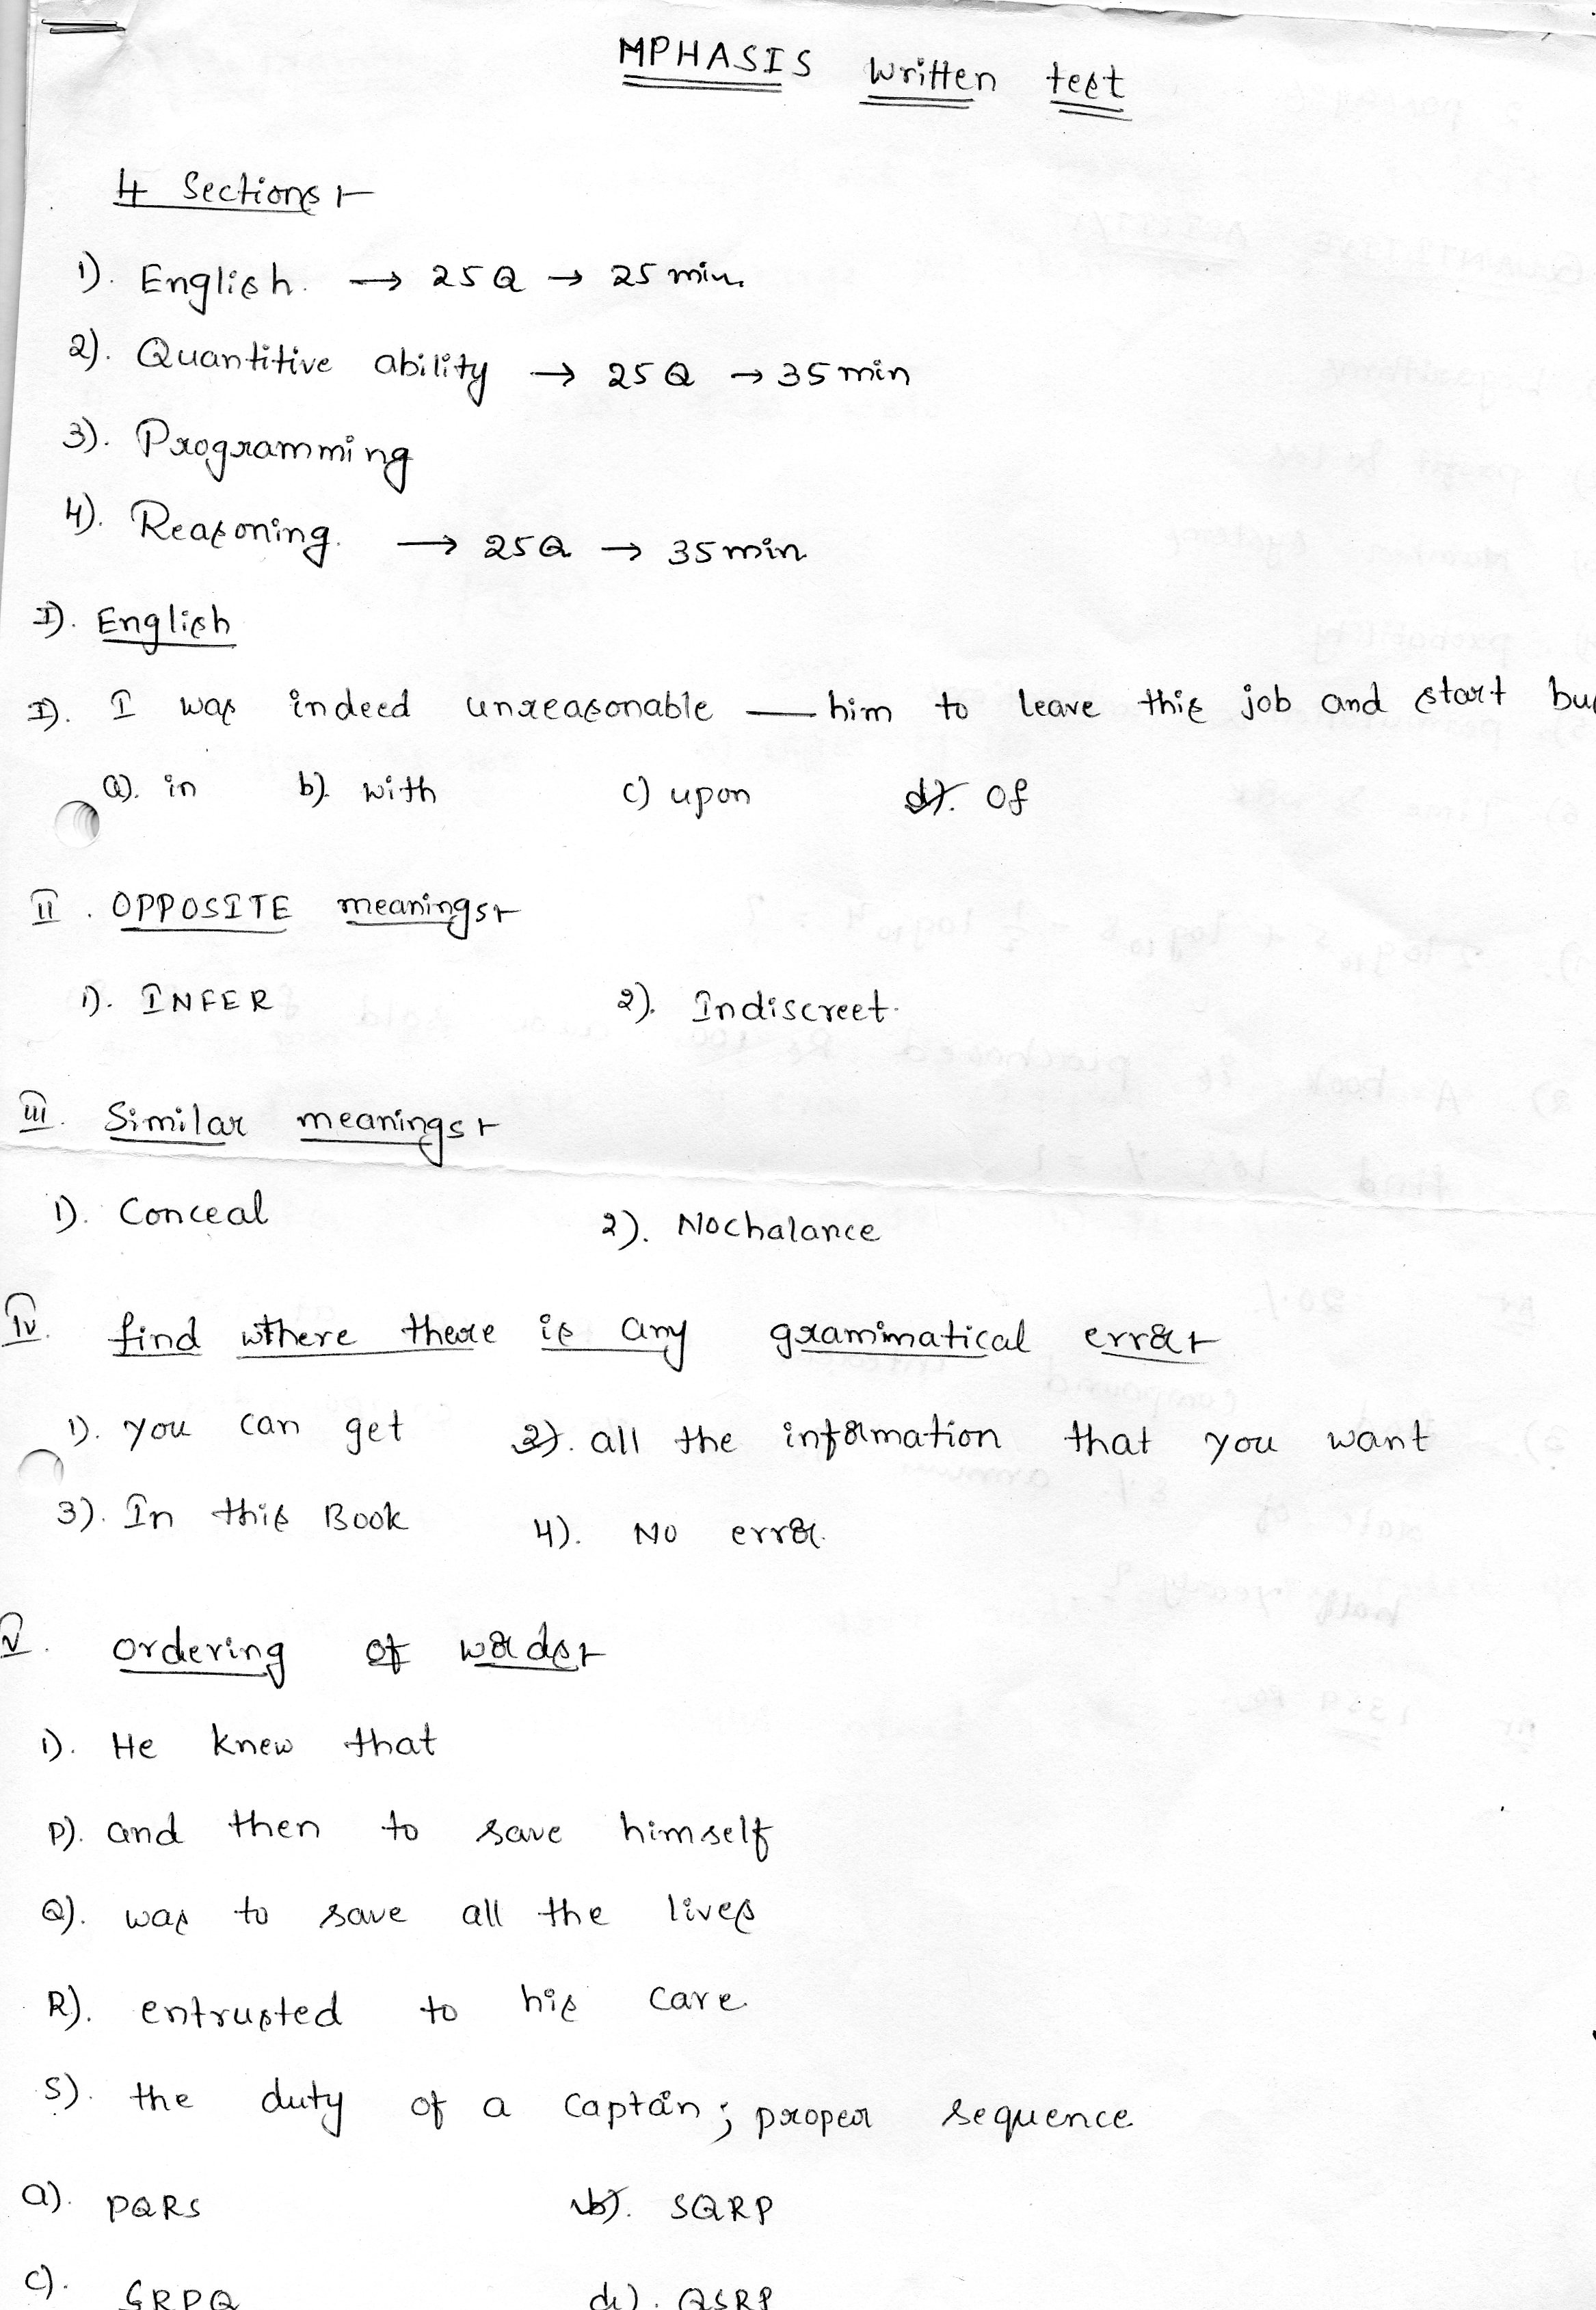 MPHASIS Written test
4 Sections:-
1). English. → 25 Q → 25 min.
2). Quantitive ability → 25 Q → 35 min
3). Programming
4). Reasoning. → 25Q → 35 min
I). English
I). I was indeed unreasonable — him to leave this job and start
a). in b). with c) upon d). of
II. OPPOSITE meanings:-
1). INFER 2). Indiscreet.
III. Similar meanings:-
1). Conceal 2). Nochalance
IV. find wthere there is any grammatical error:-
1). you can get 2). all the information that you want
3). In this Book 4). No error.
V. Ordering of words:-
1). He knew that
P). and then to save himself
Q). was to save all the lives
R). entrusted to his care
S). the duty of a captain; proper sequence
a). PQRS b). SQRP
c). SRPQ d). QSRP